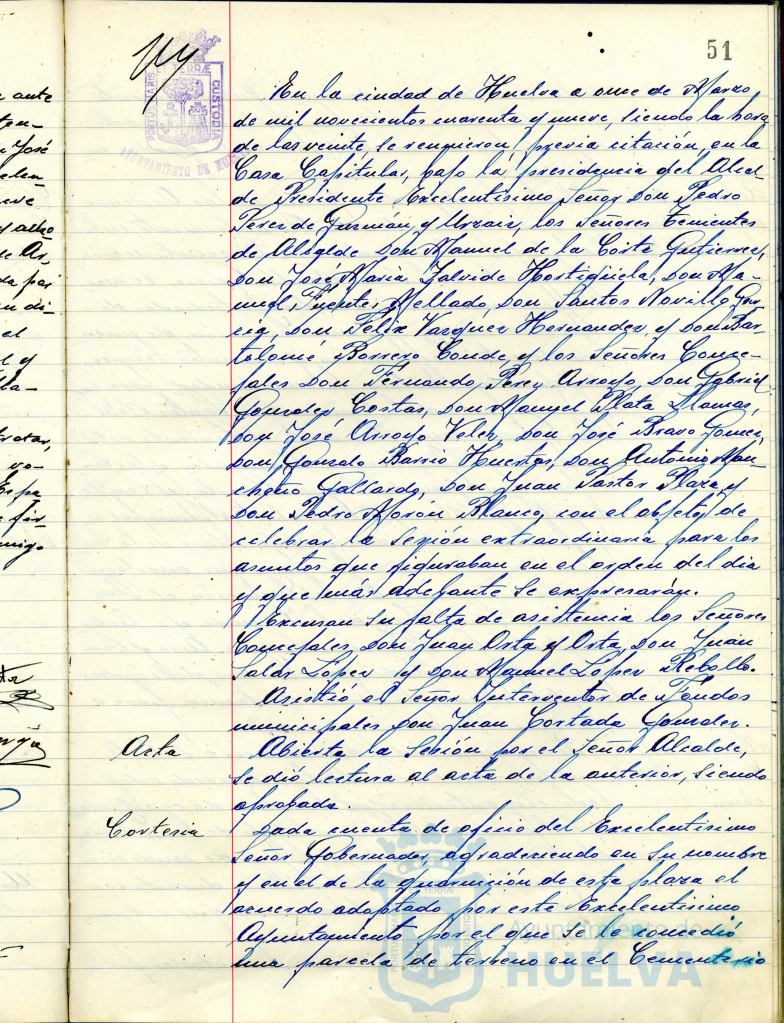 51
PORTUS MARIS ET TERRÆ CUSTODIA
AYUNTAMIENTO DE
En la ciudad de Huelva a once de Marzo
de mil novecientos cuarenta y nueve, siendo la hora
de las veinte, se reunieron, previa citación, en la
Casa Capitular, bajo la presidencia del Alcal-
de Presidente Excelentísimo Señor Don Pedro
Perez de Guzmán y Urzaiz, los Señores Tenientes
de Alcalde Don Manuel de la Corte Gutierrez,
Don José María Zalvide Hortigüela, Don Ma-
nuel Fuentes Mellado, Don Santos Novillo Gar-
cia, Don Félix Vazquez Hernandez y Don Bar-
tolomé Borrero Conde, y los Señores Conce-
jales Don Fernando Perez Arroyo, Don Gabriel
Gonzalez Costas, Don Manuel Plata Llamas,
Don José Arroyo Velez, Don José Bravo Gomez,
Don Gonzalo Barrio Huertas, Don Antonio Man-
cheño Gallardo, Don Juan Pastor Plaza y
Don Pedro Morón Blanco, con el objeto de
celebrar la sesión extraordinaria para los
asuntos que figuraban en el orden del dia
y que más adelante se expresarán.
Excusan su falta de asistencia los Señores
Concejales, Don Juan Orta y Orta, Don Juan
Salas López y Don Manuel López Rebollo.
Asistió el Señor Interventor de Fondos
municipales Don Juan Cortada Gonzalez.
Acta
Abierta la sesión por el Señor Alcalde,
se dió lectura al acta de la anterior, siendo
aprobada.
Cortesia
Dada cuenta de oficio del Excelentísimo
Señor Gobernador, agradeciendo en su nombre
y en el de la guarnición de esta plaza el
acuerdo adoptado por este Excelentísimo
Ayuntamiento por el que se le concedió
una parcela de terreno en el Cementerio
HUELVA